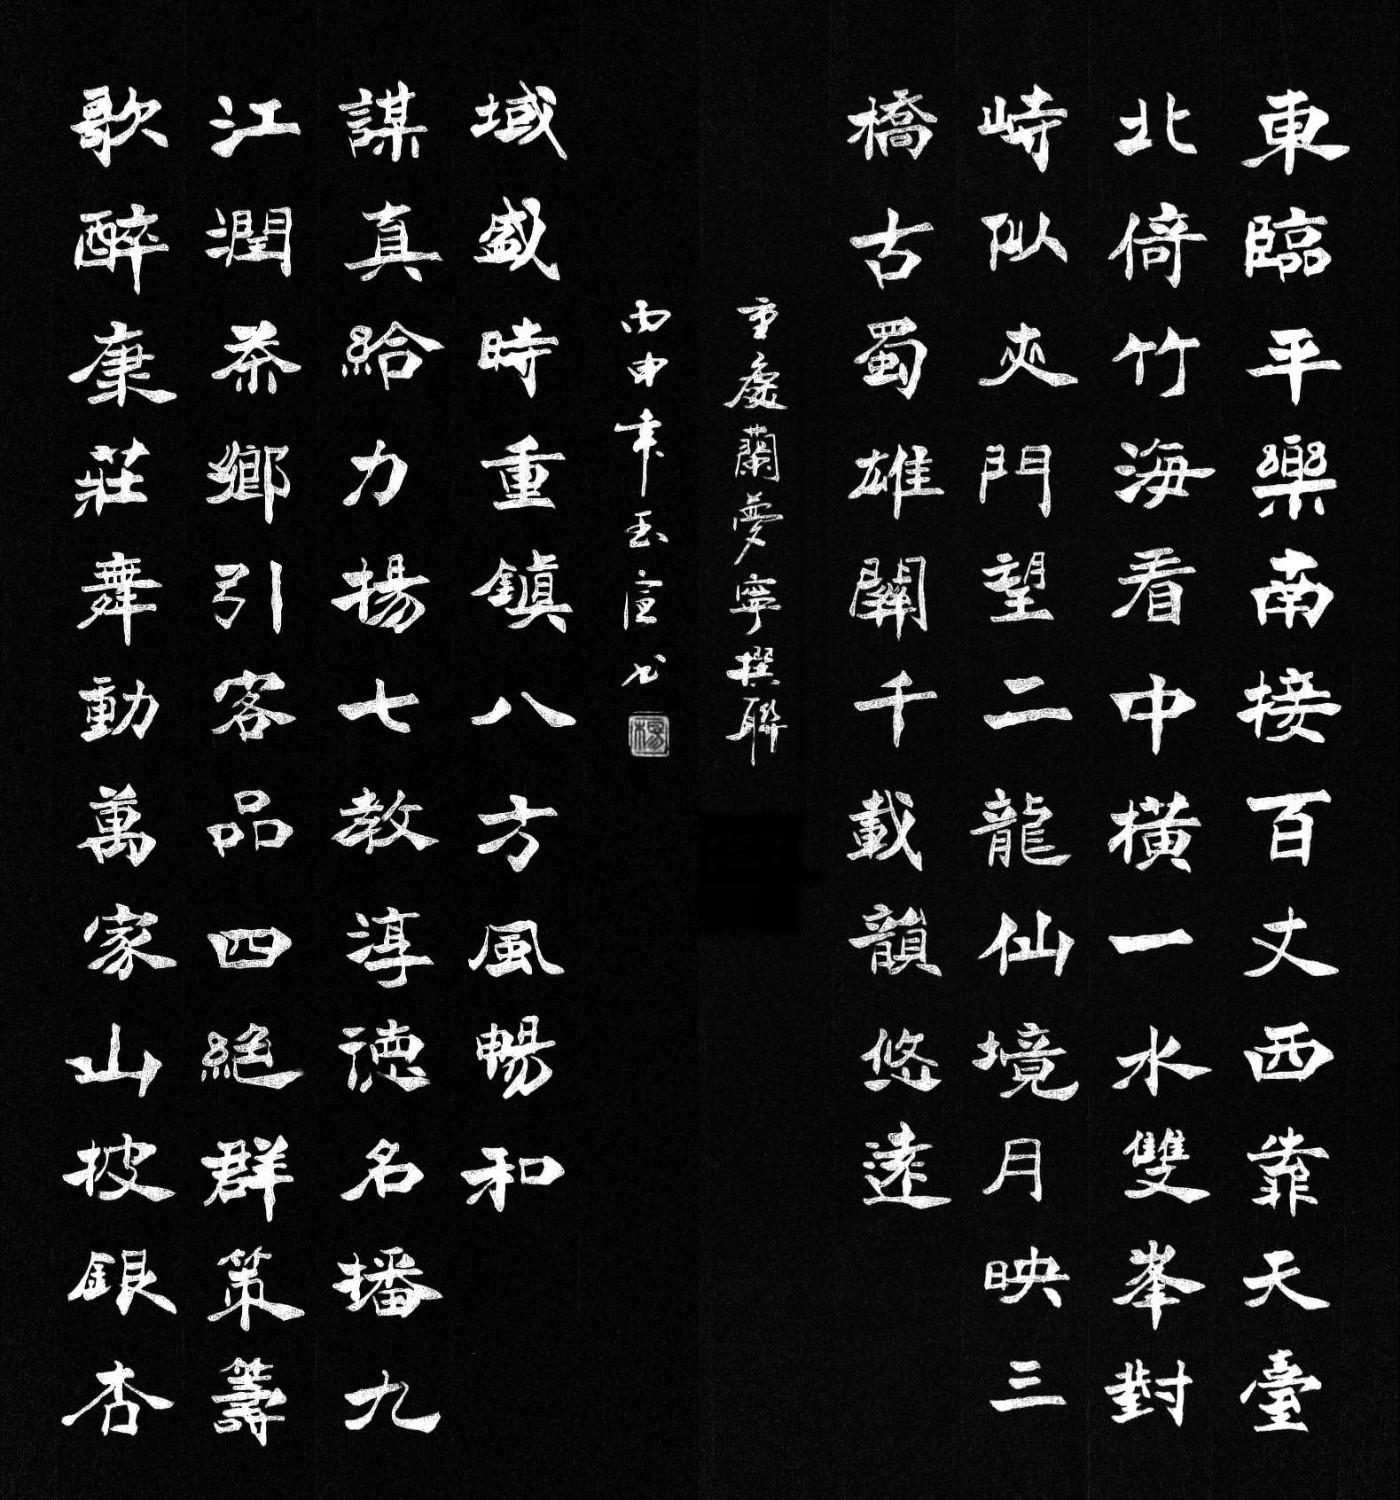 東臨平樂南接百丈西靠天臺
北倚竹海看中橫一水雙峯對
峙似夾門望二龍仙境月映三
橋古蜀雄關千載韻悠遠
重慶蘭夢寧撰聯
歌醉康莊舞動萬家山披銀杏
江潤茶鄉引客品四絕群策籌
謀真給力揚七教淳德名播九
域盛時重鎮八方風暢和
丙申年玉宣书
楊